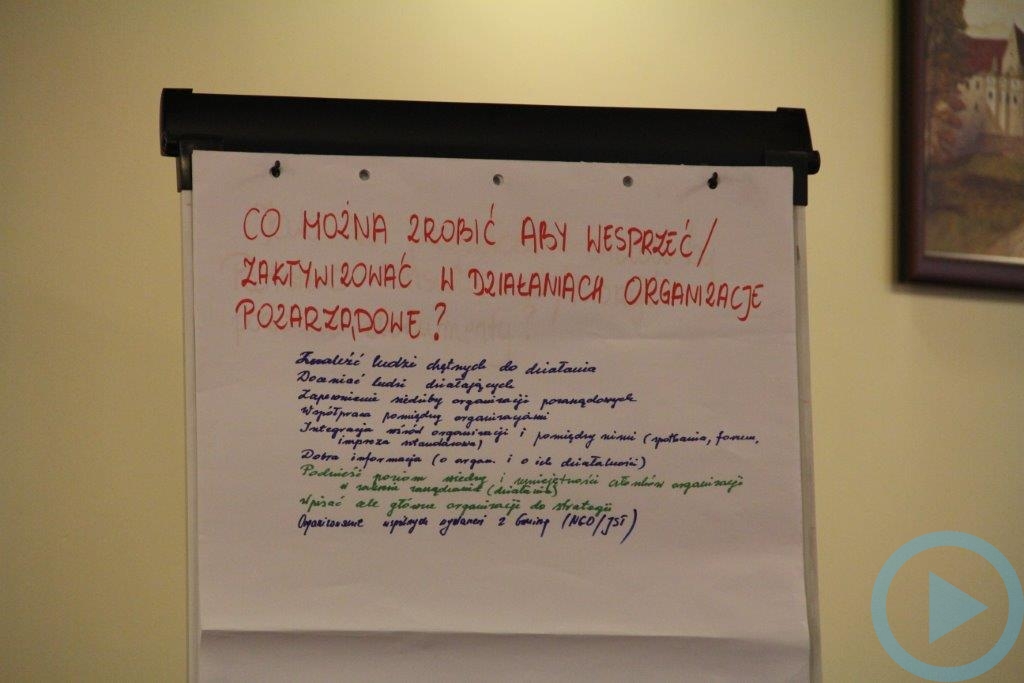 CO MOŻNA ZROBIĆ ABY WESPRZEĆ/
ZAKTYWIZOWAĆ W DZIAŁANIACH ORGANIZACJE
POZARZĄDOWE?
Znaleźć ludzi chętnych do działania
Doceniać ludzi działających
Zapewnienie siedziby organizacji pozarządowych
Współpraca pomiędzy organizacjami
Integracja wśród organizacji i pomiędzy nimi (spotkania, forum,
impreza sztandarowa)
Dobra informacja (o organ. i o ich działalności)
Podnieść poziom wiedzy i umiejętności członków organizacji
w zakresie zarządzania (działania)
Wpisać cele główne organizacji do strategii
Organizowanie wspólnych wydarzeń z Gminą (NGO/JST)